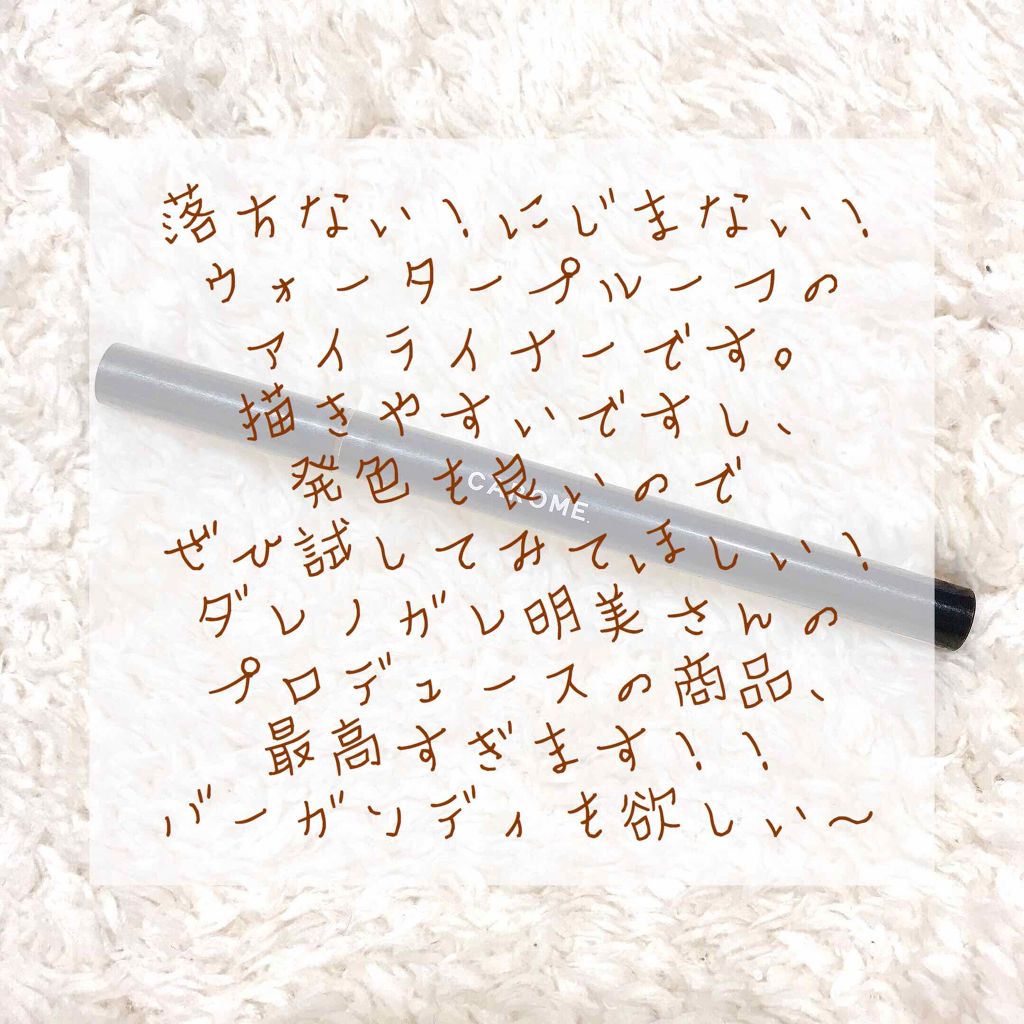 落ちない！にじまない！
ウォータープルーフの
アイライナーです。
描きやすいですし、
発色も良いので
CAROME.
ぜひ試してみてほしい！
ダレノガレ明美さんの
プロデュースの商品、
最高すぎます！！
バーガンディも欲しい〜